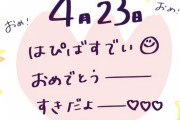 おめ!
おめ!
4月23日
はぴばすでい
おめでとう――
すきだよ―♡♡♡